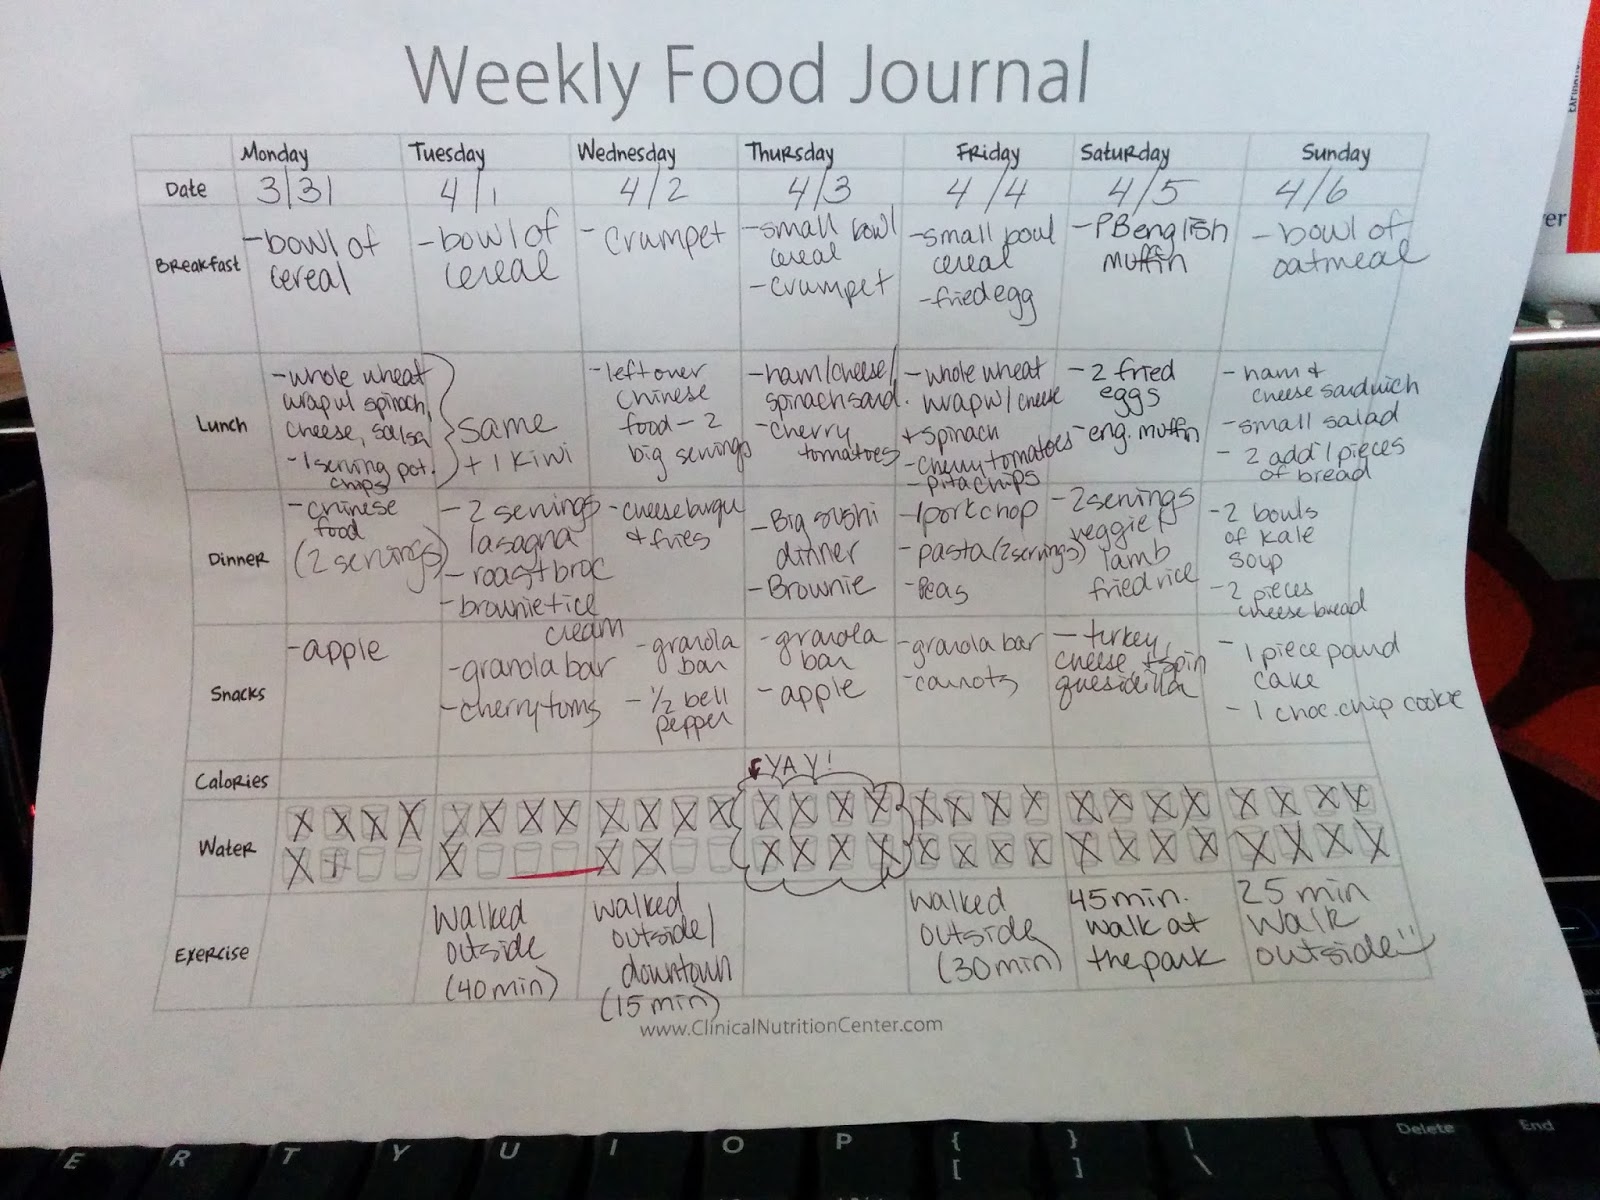 Weekly Food Journal
Monday Tuesday Wednesday Thursday Friday Saturday Sunday
Date 3/31 4/1 4/2 4/3 4/4 4/5 4/6
Breakfast
-bowl of
cereal
-bowl of
cereal
-crumpet
-small bowl
cereal
-crumpet
-small bowl
cereal
-fried egg
-PB english
muffin
-bowl of
oatmeal
Lunch
-whole wheat
wrap w/ spinach,
cheese, salsa
-1 serving pot.
chips
same
+ 1 kiwi
-leftover
chinese
food - 2
big servings
-ham/cheese/
spinach sand.
-cherry
tomatoes
-whole wheat
wrap w/ cheese
+ spinach
-cherry tomatoes
-pita chips
-2 fried
eggs
-eng. muffin
-ham &
cheese sandwich
-small salad
-2 add'l pieces
of bread
Dinner
-chinese
food
(2 servings)
-2 servings
lasagna
-roast broc
-brownie + ice
cream
-cheeseburger
& fries
-Big sushi
dinner
-Brownie
-1 pork chop
-pasta (2 servings)
-Peas
-2 servings
veggie &
lamb
fried rice
-2 bowls
of kale
soup
-2 pieces
cheese bread
Snacks
-apple
-granola bar
-cherry toms
-granola
bar
-1/2 bell
pepper
-granola
bar
-apple
-granola bar
-carrots
-turkey,
cheese, + spin
quesidilla
-1 piece pound
cake
-1 choc. chip cookie
Calories
YAY!
Water
Exercise
Walked
outside
(40 min)
walked
outside/
downtown
(15 min)
walked
outside
(30 min)
45 min.
walk at
the park
25 min
walk
outside
www.ClinicalNutritionCenter.com
er
E R T Y U I O P { [ } ] | \ Delete End